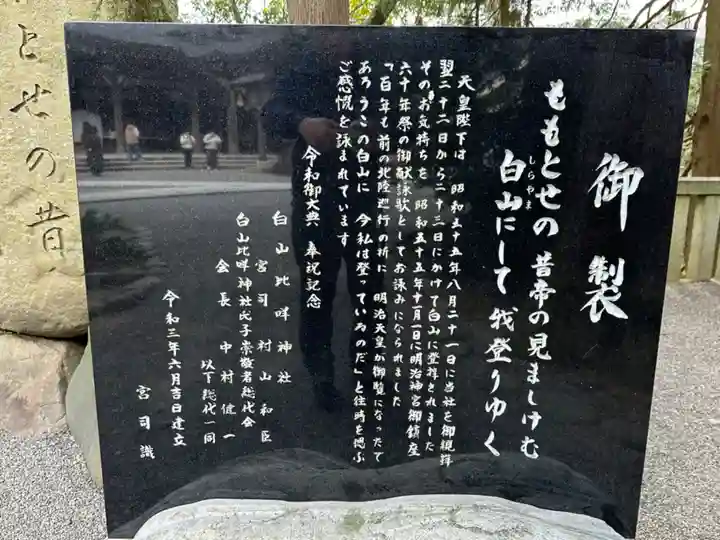 とせの昔
御製
ももとせの 昔帝の見ましけむ
白山にして 我登りゆく
しらやま
天皇陛下は 昭和五十五年八月二十一日に当社を御親拝
翌二十二日から二十三日にかけて白山に登拝されました
そのお気持ちを 昭和五十五年十一月一日に明治神宮御鎮座
六十年祭の御献詠歌としてお詠みになられました
「百年も前の北陸巡行の折に 明治天皇が御覧になったで
あろうこの白山に 今私は登っているのだ」と往時を偲ぶ
ご感慨を詠まれています
令和御大典 奉祝記念
白山比咩神社
宮司 村山和臣
白山比咩神社氏子崇敬者総代会
会長 中村健一
以下総代一同
令和三年六月吉日建立
宮司識